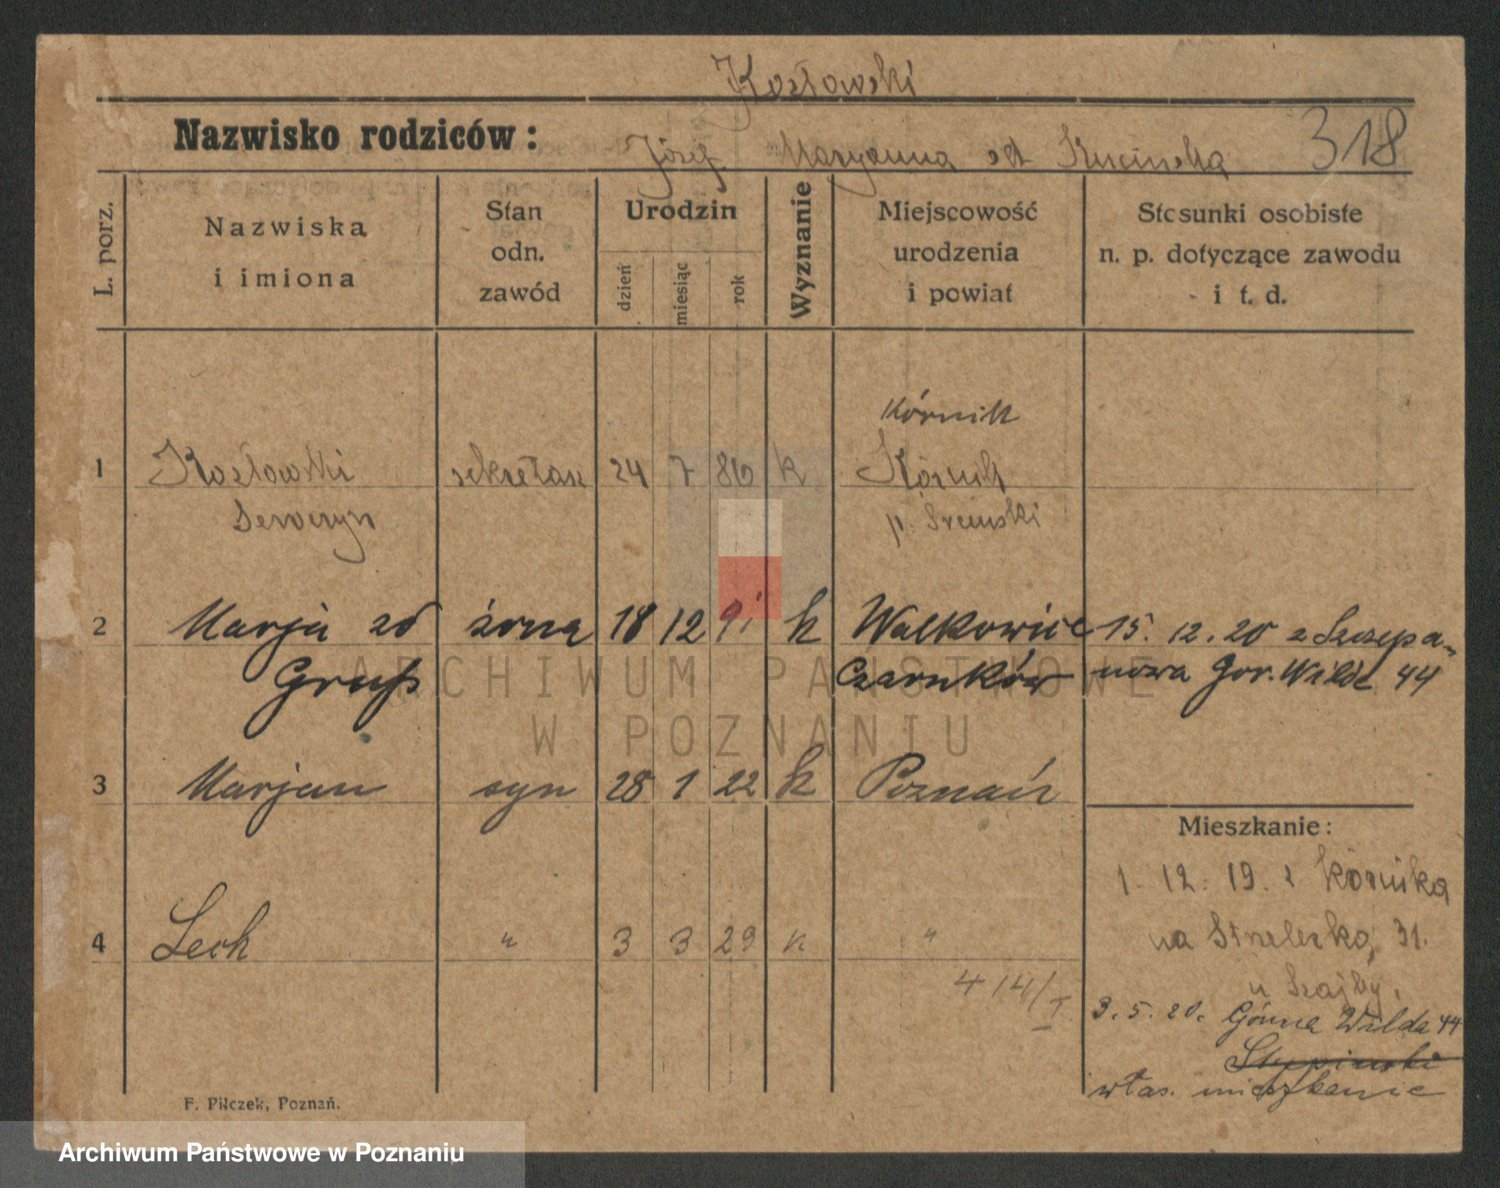 Kozłowski
Nazwisko rodziców:
Józef Maryanna od Kucińska
318
L. porz.
Nazwiska
i imiona
Stan
odn.
zawód
Urodzin
dzień
miesiąc
rok
Wyznanie
Miejscowość
urodzenia
i powiat
Stosunki osobiste
n. p. dotyczące zawodu
i t. d.
Kórnik
1 Kozłowski sekretarz 24 7 86 k Kórnik
Seweryn p. Śremski
2 Marja zd żona 18 12 91 k Walkowice 15. 12. 20 z Szczepa-
Gruß Czarnków nowa Gór. Wilda 44
3 Marjan syn 28 1 22 k Poznań
Mieszkanie:
1. 12. 19. z Kórnika
na Strzelecką 31.
4 Lech " 3 3 29 k "
u Szajby.
414/I
3. 5. 20. Górna Wilda 44
włas. mieszkanie
F. Pilczek, Poznań.
ARCHIWUM PAŃSTWOWE
W POZNANIU
Archiwum Państwowe w Poznaniu